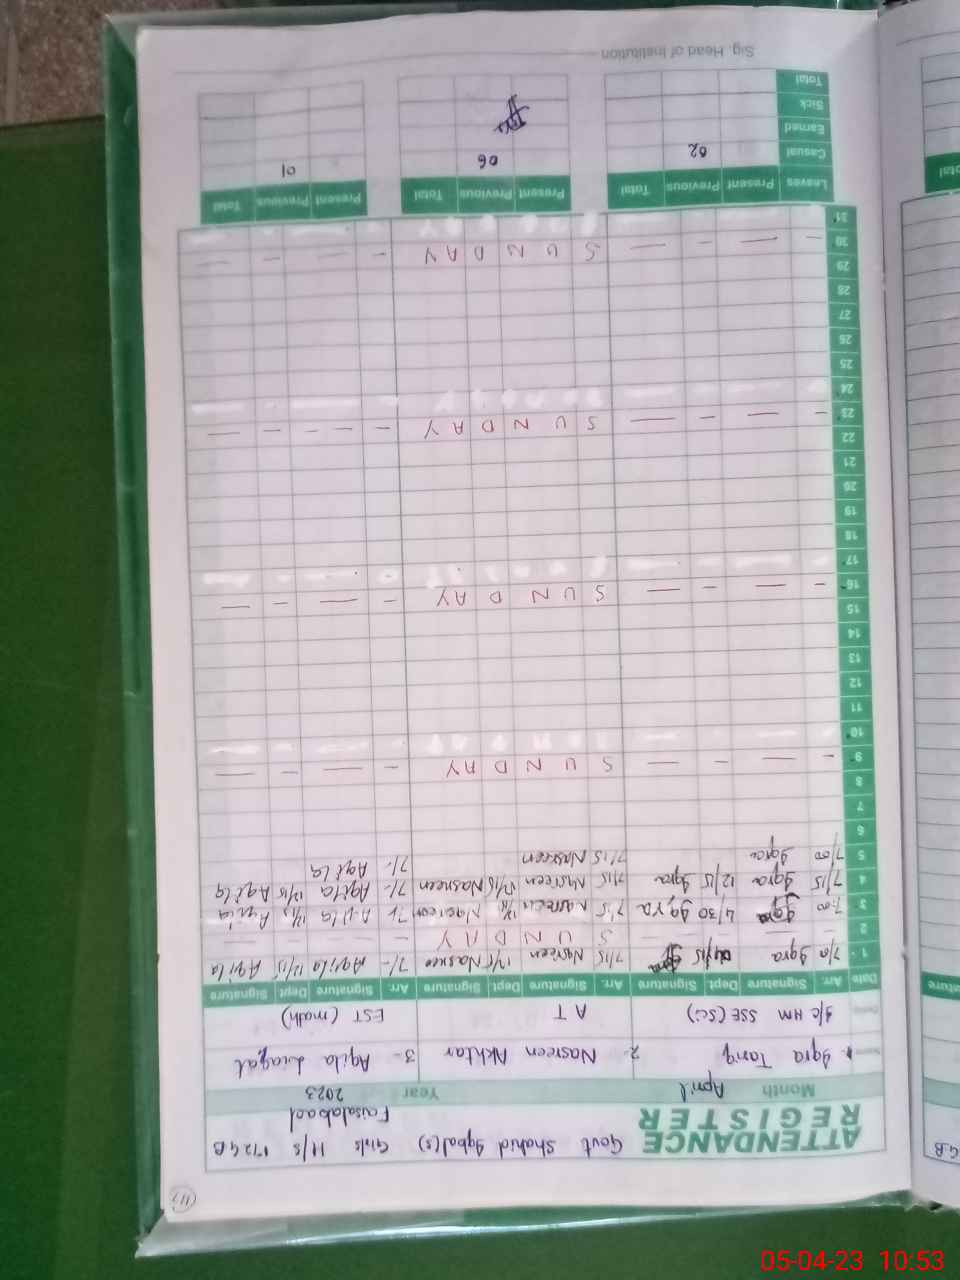 117
ATTENDANCE REGISTER Govt Shahid Iqbal (S) Girls H/S 172 G.B Faisalabad
Month April Year 2023
1. Iqra Tariq 2- Nasreen Akhtar 3- Aqila Liaqat
I/C HM SSE (Sci) A T EST (math)
Date Arr. Signature Dept Signature Arr. Signature Dept Signature Arr. Signature Dept Signature
1 Iqra 7/15 Nasreen Nasreen 7/- Aqila 12/15 Aqila
2 S U N D A Y
3 7:00 Iqra 4/30 Iqra 7/15 Nasreen Nasreen Aqila 12/15 Aqila
4 7/15 Iqra 12/15 Iqra 7/15 Nasreen 12/15 Nasreen 7/- Aqila 12/15 Aqila
5 7/00 Iqra 7/15 Nasreen 7/- Aqila
6
7
8
9 - - - - S U N D A Y - - - -
10
11
12
13
14
15
16 - - - - S U N D A Y - - - -
17
18
19
20
21
22
23 - - - - S U N D A Y - - - -
24
25
26
27
28
29
30 - - - - S U N D A Y - - - -
31
Leaves Present Previous Total Present Previous Total Present Previous Total
Casual 02 06 01
Earned
Sick
Total
Sig. Head of Institution
05-04-23 10:53